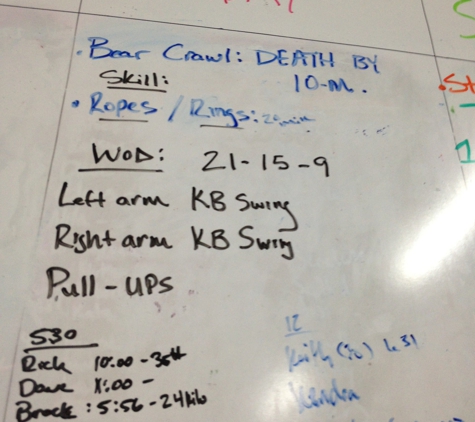 • Bear Crawl: DEATH BY
10-M.
Skill:
• Ropes / Rings:
WOD: 21-15-9
Left arm KB Swing
Right arm KB Swing
Pull-ups
530
Rock 10:00 -
Dave
Brock: 5:56 - 24kilo
12
Kendra